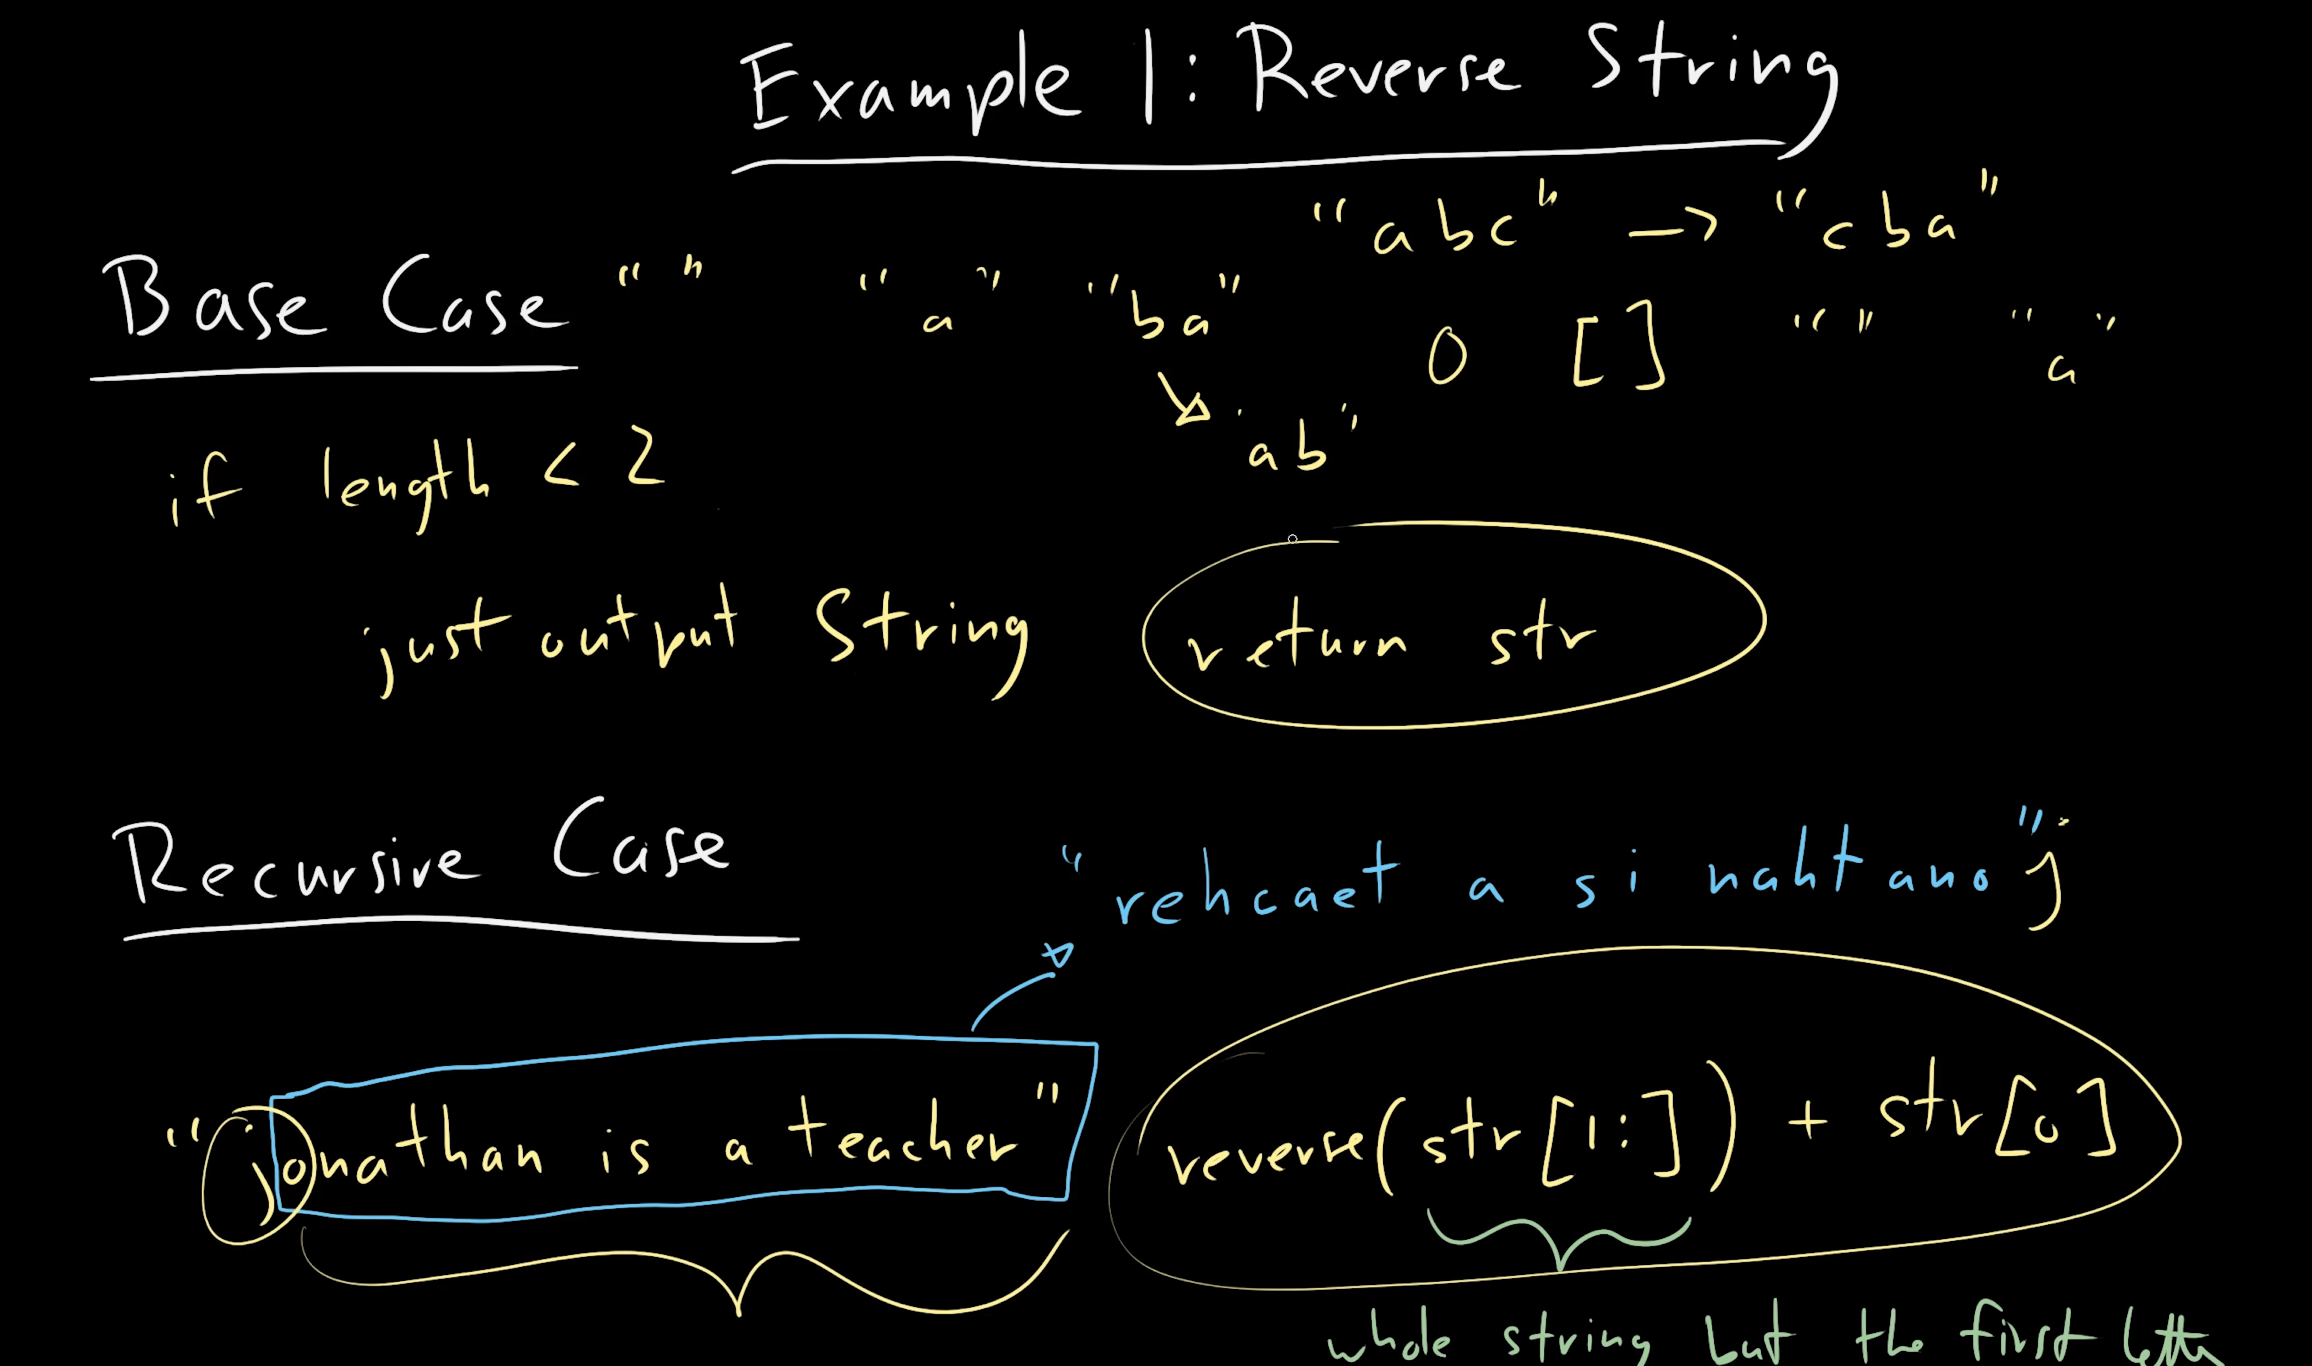 Example 1: Reverse String
"abc" -> "cba"
Base Case " " "a" "ba" 0 [] " " "a"
'ab'
if length < 2
just output String return str
Recursive Case "rehcaet a si nahtano" j
"jonathan is a teacher" reverse(str[1:]) + str[0]
whole string but the first letter